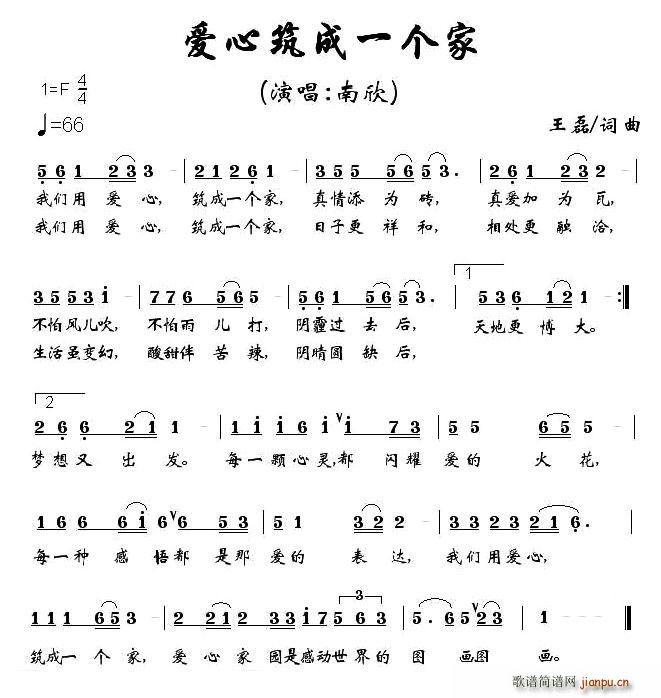 爱心筑成一个家
1=F 4/4
(演唱:南欣)
♩=66
王磊/词曲
5 6 1 2 3 3 - | 2 1 2 6 1 - | 3 5 5 5 6 5 3. | 2 6 1 2 3 2 - |
我们用爱心, 筑成一个家, 真情添为砖, 真爱加为瓦,
我们用爱心, 筑成一个家, 日子更祥和, 相处更融洽,
1
3 5 5 3 i - | 7 7 6 5 6 5 - | 5 6 1 5 6 5 3. | 5 3 6 1 2 1 - :||
不怕风儿吹, 不怕雨儿打, 阴霾过去后, 天地更博大。
生活虽变幻, 酸甜伴苦辣, 阴晴圆缺后,
2
2 6 6 2 1 1 - | 1 i i 6 i v i 7 3 | 5 5 6 5 5 - |
梦想又出发。每一颗心灵,都闪耀爱的火花,
1 6 6 6 i v 6 6 5 3 | 5 1 3 2 2 - | 3 3 2 3 2 1 6. |
每一种感悟都是那爱的表达, 我们用爱心,
3
1 1 1 6 5 3 - | 2 2 1 2 2 3 3 5 6 3 | 5. 6 5 v 2 3 | 1 - - - ||
筑成一个家, 爱心家园是感动世界的图画图画。
歌谱简谱网
jianpu.cn